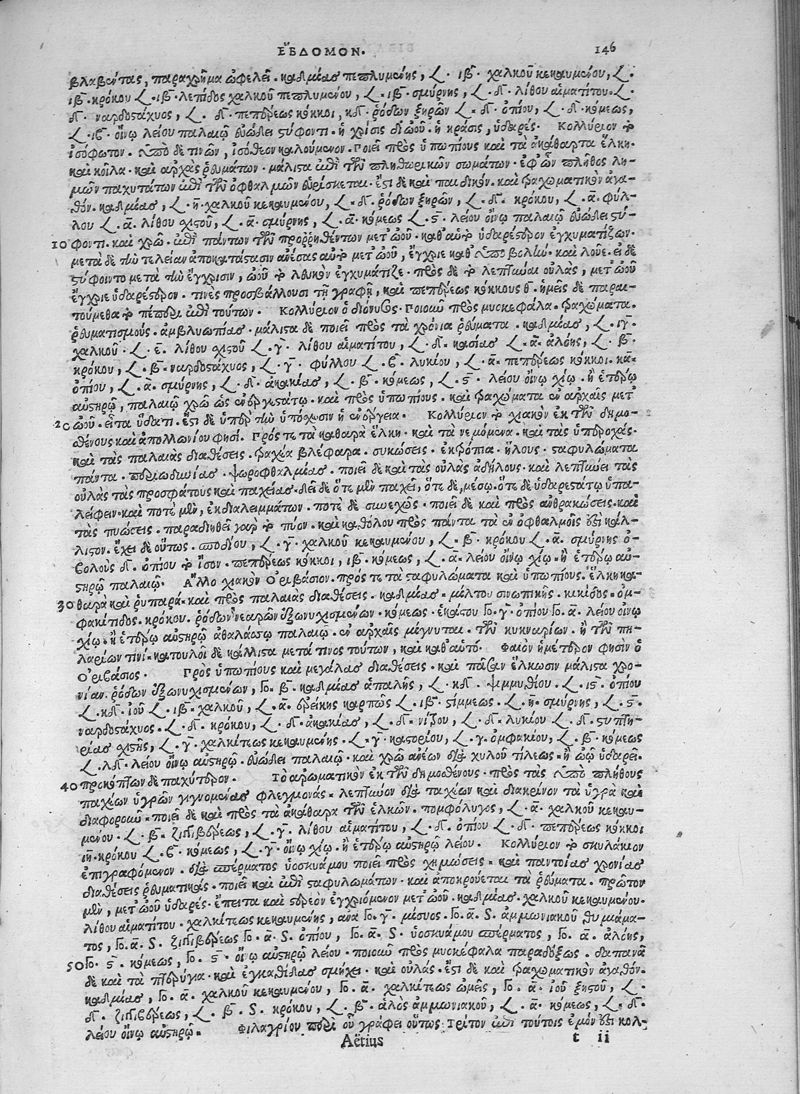 ΕΒΔΟΜΟΝ. 146
βλαβέντας, παραχρῆμα ὠφελεῖ. καδμίας πεπλυμένης, ιβ. χαλκοῦ κεκαυμένου,
ιβ. κρόκου ιβ. λεπίδος χαλκοῦ πεπλυμένου, ιβ. σμύρνης, δ. λίθου αἱματίτου.
δ. ναρδοστάχυος, δ. πεπέρεως κόκκοι, κδ. ῥόδων ξηρῶν δ. ὀπίου, δ. κόμεως,
οἴνῳ λείου παλαιῷ εὐώδει στύφοντι. ἡ χρῆσις δι ὠοῦ. ἡ κρᾶσις, ὑδαρές. Κολλύριον τὸ
ἰσόφωτον. ὑπὸ δὲ τινῶν, ἰσόθεον καλούμενον. Ποιεῖ πρὸς ὑπώπιους καὶ τὰ ἀκάθαρτα ἕλκη.
καὶ κοῖλα. καὶ ἀρχὰς ῥευμάτων. μάλιστα ἐπὶ τῶν πληθωρικῶν σωμάτων. ἐφ ὧν πλῆθος λη-
μῶν παχυτάτων ἐπὶ τῶν ὀφθαλμῶν εὑρίσκεται. ἔστι δὲ καὶ παιδικὸν. καὶ τραχωματικὸν ἀγα-
θόν. καδμίας, η. χαλκοῦ κεκαυμένου, δ. ῥόδων ξηρῶν, δ. κρόκου, α. φύλ-
λου α. λίθου σχιστοῦ, α. σμύρνης, α. κόμεως ϛ. λείου οἴνῳ παλαιῷ εὐώδει στύ-
10 φοντι. καὶ χρῶ. ἐπὶ πάντων τῶν προρρηθέντων μετ ὠοῦ. καθ αὑτὸ ὑδαρέστερον ἐγχυματίζων.
μετὰ δὲ τὴν τελείαν ἀποκατάστασιν ἀνέσας αὐτὸ μετ ὠοῦ, ἔγχριε καθ ὑποβολὴν. καὶ λοῦε. εἰ δὲ
στύφοιντο μετὰ τὴν ἔγχρισιν, ὠοῦ τὸ λευκὸν ἐγχυμάτιζε. πρὸς δὲ τὸ λεπτῦναι οὐλὰς, μετ ὠοῦ
ἔγχριε ὑδαρέστερον. τινὲς προσβάλλουσι τῇ γραφῇ, καὶ πεπέρεως κόκκους θ. ἡμεῖς δὲ παραι-
τούμεθα τὸ πέπερι ἐπὶ τούτων. Κολλύριον ὁ διόνυσος. Ποιοῦν πρὸς μυοκεφάλα. τραχώματα.
ῥευματισμούς. ἀμβλυωπίας. μάλιστα δὲ ποιεῖ πρὸς τὰ χρόνια ῥεύματα. καδμίας, ιγ.
χαλκοῦ. ε. λίθου σχιστοῦ γ. λίθου αἱματίτου, δ. κασίας α. ἀλόης, β.
κρόκου, β. ναρδοστάχυος, γ. φύλλου λυκίου, α. πεπέρεως κόκκοι. κα.
ὀπίου, α. σμύρνης, δ. ἀκακίας, β. κόμεως, ϛ. λείου οἴνῳ χίῳ. ἢ ἑτέρῳ
αὐστηρῷ, παλαιῷ χρῶ ὡς ἐνεργεστάτῳ. καὶ πρὸς ὑπώπιους. καὶ τραχώματα ἐν ἀρχαῖς μετ
20 ὠοῦ. εἶτα ὕδατι. ἔστι δὲ ὑπὲρ τὴν ὑπόχυσιν ἡ ἐνέργεια. Κολλύριον τὸ χιακὸν ἐκ τῶν δημο-
σθένους καὶ ἀπολλωνίου φησί. Πρός τε τὰ καθαρὰ ἕλκη. καὶ τὰ νεμόμενα. καὶ τὰς ὑπεροχάς.
καὶ τὰς παλαιὰς διαθέσεις. τραχέα βλέφαρα. συκώσεις. ἐκτρόπια. ἥλους. σταφυλώματα
πάντα. περιωδυνίας. ψωροφθαλμίας. ποιεῖ δὲ καὶ τὰς οὐλὰς ἀδήλους. καὶ λεπτύνει τὰς
οὐλὰς τὰς προσφάτους καὶ παχείας. δεῖ δὲ ὅτε μὲν παχεῖ, ὅτε δὲ, μέσῳ. ὅτε δὲ ὑδαρεστάτῳ ὑπα-
λείφειν. καὶ ποτὲ μὲν, ἐκ διαλειμμάτων. ποτὲ δὲ συνεχῶς. ποιεῖ δὲ καὶ πρὸς ἀνθρακώσεις. καὶ
τὰς πυώσεις. παραδινθεῖ γὰρ τὸ πῦον. καὶ καθόλου πρὸς πάντα τὰ ἐν ὀφθαλμοῖς ἐστὶ κάλ-
λιστον. ἔχει δὲ οὕτως. σποδίου, γ. χαλκοῦ κεκαυμένου, β. κρόκου α. σμύρνης ὀ-
βολοὺς δ. ὀπίου τὸ ἴσον. πεπέρεως κόκκοι, ιβ. κόμεως, α. λείου οἴνῳ χίῳ. ἢ ἑτέρῳ αὐ-
στηρῷ παλαιῷ. Ἄλλο χιακὸν Ὀρειβάσιον. πρός τε τὰ σταφυλώματα καὶ ὑπώπιους. ἕλκη κα-
30 θαρὰ καὶ ῥυπαρά. καὶ πρὸς παλαιὰς διαθέσεις. καδμίας. μίλτου σινωπικῆς. κικίδος. ὀμ-
φακίτιδος. κρόκου. ῥόδων νεαρῶν ἐξωνυχισμένων. κόμεως. ἑκάστου γ. ὀπίου α. λείου οἴνῳ
χίῳ. ἢ ἑτέρῳ αὐστηρῷ ἀθαλάσσῳ παλαιῷ. ἐν ἀρχαῖς μίγνυται. τῶν κυκναρίων. ἢ τῶν πη-
λαρίων τινὶ. καὶ τουλοῖ δὲ κάλλιστα μετὰ τινὸς τούτων, καὶ καθ αὑτό. Φαιὸν ἡμέτερον φησὶν ὁ
Ὀρειβάσιος. Πρὸς ὑπώπιους καὶ μεγάλας διαθέσεις. καὶ πᾶσαν ἕλκωσιν μάλιστα χρο-
νίαν. ῥόδων ἐξωνυχισμένων, β. καδμίας ἁπαλῆς, κδ. ψιμμυθίου. ιϛ. ὀπίου
κδ. ἰοῦ ιβ. χαλκοῦ, α. ἐρείκης καρπὸς ιβ. στίμμεως. η. σμύρνης, ϛ.
ναρδοστάχυος. δ. κρόκου, δ. ἀκακίας, δ. νίτρου, δ. λυκίου δ. στυπτη-
ρίας σχιστῆς, γ. χαλκίτεως κεκαυμένης. γ. καστορίου, γ. ὀμφακίου, β. κόμεως
λδ. λείου οἴνῳ αὐστηρῷ. εὐώδει παλαιῷ. καὶ χρῶ ἀνέων διὰ χυλοῦ τήλεως. ἢ ὠῷ ὑδαρεῖ.
40 προκόπτων δὲ παχύτερον. Τὸ ἀρωματικὸν ἐκ τῶν δημοσθένους. πρὸς τὰς ὑπὸ πλήθους
παχέων ὑγρῶν γινομένας φλεγμονάς. λεπτύνον διὰ ταχέων καὶ διακρῖνον τὰ ὑγρὰ καὶ
διαφοροῦν. ποιεῖ δὲ καὶ πρὸς τὰ ἀκάθαρτα τῶν ἑλκῶν. πομφόλυγος, α. χαλκοῦ κεκαυ-
μένου. β. ζιγγιβέρεως, γ. λίθου αἱματίτου, δ. ὀπίου δ. πεπέρεως κόκκοι
ιη. κρόκου κόμεως, γ. οἴνῳ χίῳ. ἢ ἑτέρῳ αὐστηρῷ λείου. Κολλύριον τὸ σκυλάκιον
ἐπιγραφόμενον. διὰ σπέρματος ὑοσκυάμου ποιεῖ πρὸς χημώσεις. καὶ παντοίας χρονίας
διαθέσεις ῥευματικάς. ποιεῖ καὶ ἐπὶ σταφυλωμάτων. καὶ ἀποκρούεται τὰ ῥεύματα. πρῶτον
μὲν, μετ ὠοῦ ὑδαρές. ἔπειτα καὶ στερεὸν ἐγχριόμενον μετ ὠοῦ. καδμίας. χαλκοῦ κεκαυμένου.
λίθου αἱματίτου. χαλκίτεως κεκαυμένης, ἀνὰ γ. μίσυος. α. S. ἀμμωνιακοῦ θυμιάμα-
τος, α. S. ζιγγιβέρεως, α. S. ὀπίου, α. S. ὑοσκυάμου σπέρματος, α. ἀλόης,
50 ϛ. κόμεως, ϛ. οἴνῳ αὐστηρῷ λείου. ποιοῦν πρὸς μυοκέφαλα παραδόξως. δαπανᾷ
δὲ καὶ τὰ πτερύγια. καὶ ἐγκανθίδας σμήχει. καὶ οὐλάς. ἔστι δὲ καὶ τραχωματικὸν ἀγαθόν.
καδμίας, α. χαλκοῦ κεκαυμένου, α. χαλκίτεως ὠμῆς, α. ἰοῦ ξυστοῦ,
δ. ζιγγιβέρεως, β. S. κρόκου, β. ἁλὸς ἀμμωνιακοῦ, α. κόμεως, δ.
λείου οἴνῳ αὐστηρῷ. Φιλαγρίου περὶ οὗ γράφει οὕτως. Τρίτον ἐπὶ τούτοις ἐμόν ἐστι κολ-
Aëtius t ii